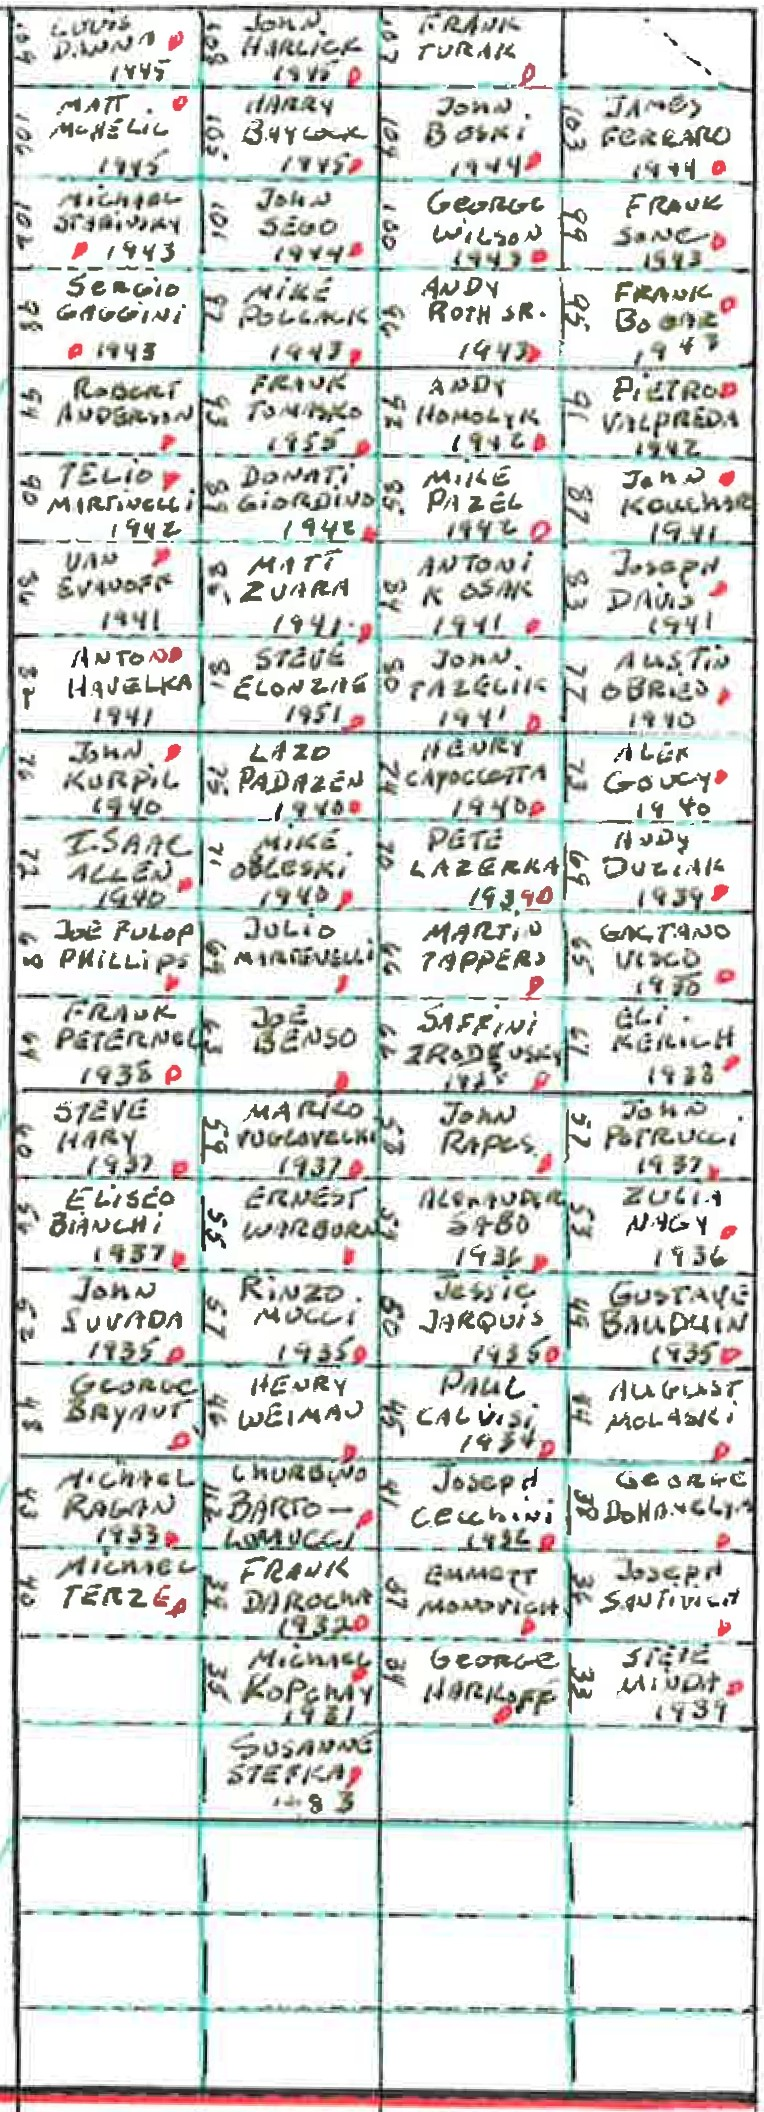 109 LOUIS DANNA 1945
108 JOHN HARLICK 1945
107 FRANK TURAK
106 MATT MCHELIC 1945
105 HARRY BAYLOCK 1945
104 JOHN BOSKI 1944
103 JAMES FERRARO 1944
102 MICHAEL 1943
101 JOHN SEGO 1944
100 GEORGE WILSON 1943
99 FRANK SONC 1943
98 SERGIO GAGGINI 1943
97 MIKE POLLACK 1943
96 ANDY ROTH SR. 1943
95 FRANK 1943
94 ROBERT ANDERSON
93 FRANK TOMASKO 1955
92 ANDY HOMOLYK 1942
91 PIETRO VALPREDA 1942
90 TELIO MARTINELLI 1942
89 DONATI GIORDINO 1942
88 MIKE PAZEL 1942
87 JOHN 1941
86 VAN EVANOFF 1941
85 MATT ZUARA 1941
84 ANTONI KOSAK 1941
83 JOSEPH DAVIS 1941
82 ANTON HAVELKA 1941
81 STEVE 1951
80 JOHN 1941
77 AUSTIN OBRIEN 1940
76 JOHN KURPIL 1940
75 LAZO PADAZEN 1940
74 HENRY 1940
73 ALEX GOUCY 1940
72 ISAAC ALLEN 1940
71 MIKE OBLESKI 1940
70 PETE LAZERKA 1939
69 ANDY DUZIAK 1939
68 JOE FULOP PHILLIPS
JULIO MARTENELLI
66 MARTIN TAPPERO
65 GAETANO VISCO
64 FRANK PETERNEL 1938
63 JOE BENSO
SAFFINI
61 ELI KERICH 1938
60 STEVE HARY 1937
59 MARKO 1937
58 JOHN RAPES
57 JOHN POTRUCCI 1937
56 ELISEO BIANCHI 1937
55 ERNEST WARBURN
54 ALEXANDER SABO 1936
53 NAGY 1936
52 JOHN SUVADA 1935
51 RINZO MUCCI 1935
50 JESSIE JARQUIS 1935
49 GUSTAVE BAUDUIN 1935
48 GEORGE BRYANT
46 HENRY WEIMAN
45 PAUL CALVISI 1934
44 AUGUST MOLASKI
43 MICHAEL RAGAN 1933
42 BARTO- LOMUCCI
41 JOSEPH CECCHINI
38 GEORGE
40 MICHAEL TERZE
39 FRANK DAROCHA 1932
37 EMMETT MONOVICH
36 JOSEPH SANTIVICH
35 MICHAEL KOPCHAY 1931
34 GEORGE HARKOFF
33 STEVE MINDA 1939
SUSANNE STEFKA